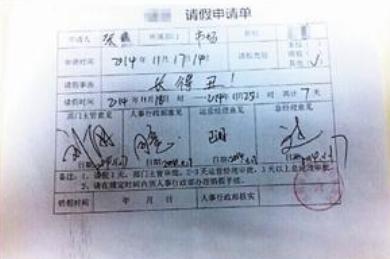 请假申请单
申请人 张 所属部门 市场 职位
申请时间 2014年11月17日 请假类别
请假事由 长得丑！
请假时间 2014年11月18日 时 2014年11月25日 时 共计 7 天
部门主管意见 人事行政部意见 运营经理意见 总经理意见
日期 日期 日期 日期
备注：1、请假1天，部门主管审批，2-3天运营经理审批，3天以上总经理审批。
2、请在规定时间内到人事行政部办理销假手续。
销假时间 年 月 日 人事行政部核实